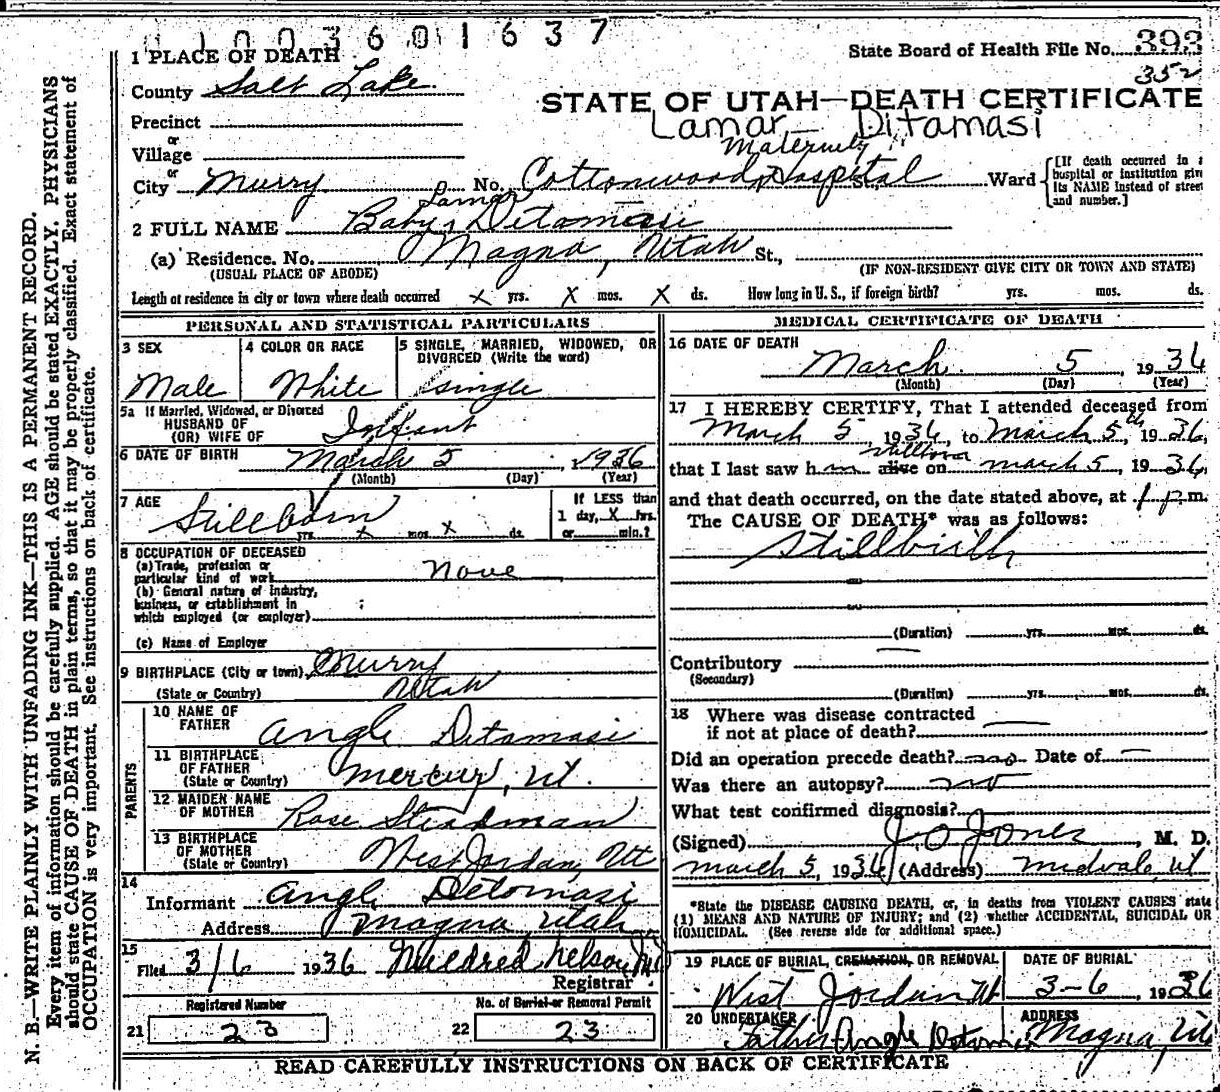 1 1 0 0 3 6 0 1 6 3 7
1 PLACE OF DEATH
State Board of Health File No. 393
352
County Salt Lake
STATE OF UTAH—DEATH CERTIFICATE
Precinct
Lamar Ditamasi
or
Village
Maternity
or
City Murry No. Cottonwood Hospital St., Ward
[If death occurred in a
hospital or institution giv
its NAME instead of street
and number.]
Lamar
2 FULL NAME Baby Ditomasi
(a) Residence. No. Magna, Utah St.,
(USUAL PLACE OF ABODE) (IF NON-RESIDENT GIVE CITY OR TOWN AND STATE)
Length of residence in city or town where death occurred X yrs. X mos. X ds. How long in U. S., if foreign birth? yrs. mos. ds.
PERSONAL AND STATISTICAL PARTICULARS
3 SEX
Male
4 COLOR OR RACE
White
5 SINGLE, MARRIED, WIDOWED, OR
DIVORCED (Write the word)
single
5a If Married, Widowed, or Divorced
HUSBAND OF
(OR) WIFE OF Infant
6 DATE OF BIRTH March 5, 1936
(Month) (Day) (Year)
7 AGE
Stillborn
yrs. x mos. x ds.
If LESS than
1 day, X hrs.
or min.?
8 OCCUPATION OF DECEASED
(a) Trade, profession or
particular kind of work None
(b) General nature of industry,
business, or establishment in
which employed (or employer)
(c) Name of Employer
9 BIRTHPLACE (City or town) Murry
(State or Country) Utah
PARENTS
10 NAME OF
FATHER Angle Ditamasi
11 BIRTHPLACE
OF FATHER
(State or Country) Mercur, Ut.
12 MAIDEN NAME
OF MOTHER Rose Steadman
13 BIRTHPLACE
OF MOTHER
(State or Country) West Jordan, Ut
14
Informant Angle Detomasi
Address Magna Utah
15
Filed 3/6 1936 Mildred Nelson
Registrar
Registered Number
21 23
No. of Burial or Removal Permit
22 23
MEDICAL CERTIFICATE OF DEATH
16 DATE OF DEATH
March 5 1936
(Month) (Day) (Year)
17 I HEREBY CERTIFY, That I attended deceased from
March 5, 1936, to March 5th, 1936,
stillborn
that I last saw h im alive on march 5, 1936,
and that death occurred, on the date stated above, at 1 p m.
The CAUSE OF DEATH* was as follows:
Stillbirth
(Duration) yrs. mos. ds.
Contributory
(Secondary)
(Duration) yrs. mos. ds.
18 Where was disease contracted
if not at place of death?
Did an operation precede death? no Date of
Was there an autopsy? no
What test confirmed diagnosis?
(Signed) J. O. Jones, M. D.
march 5, 1936 (Address) midvale, ut
*State the DISEASE CAUSING DEATH, or, in deaths from VIOLENT CAUSES state
(1) MEANS AND NATURE OF INJURY; and (2) whether ACCIDENTAL, SUICIDAL OR
HOMICIDAL. (See reverse side for additional space.)
19 PLACE OF BURIAL, CREMATION, OR REMOVAL
West Jordan Ut
DATE OF BURIAL
3-6, 1936
20 UNDERTAKER
Father Angle Detomasi
ADDRESS
Magna, Ut
READ CAREFULLY INSTRUCTIONS ON BACK OF CERTIFICATE
N. B.—WRITE PLAINLY WITH UNFADING INK—THIS IS A PERMANENT RECORD.
Every item of information should be carefully supplied. AGE should be stated EXACTLY. PHYSICIANS
should state CAUSE OF DEATH in plain terms, so that it may be properly classified. Exact statement of
OCCUPATION is very important. See instructions on back of certificate.